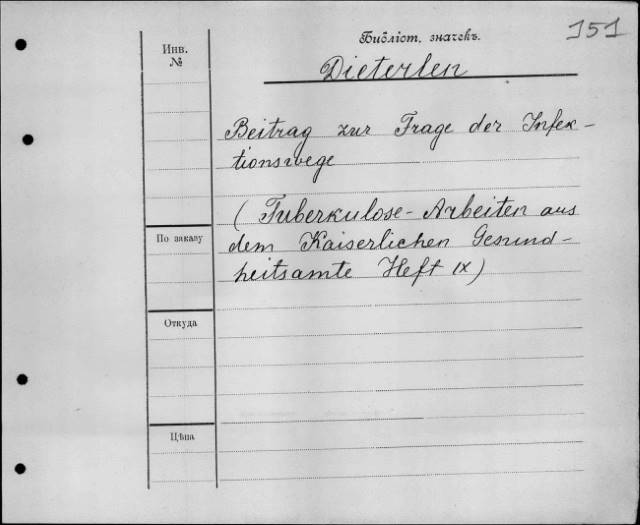 151
Библіот. значекъ.
Инв.
№
Dieterlen
Beitrag zur Frage der Infek-
tionswege
(Tuberkulose-Arbeiten aus
По заказу
dem Kaiserlichen Gesund-
heitsamte Heft IX)
Откуда
Цѣна